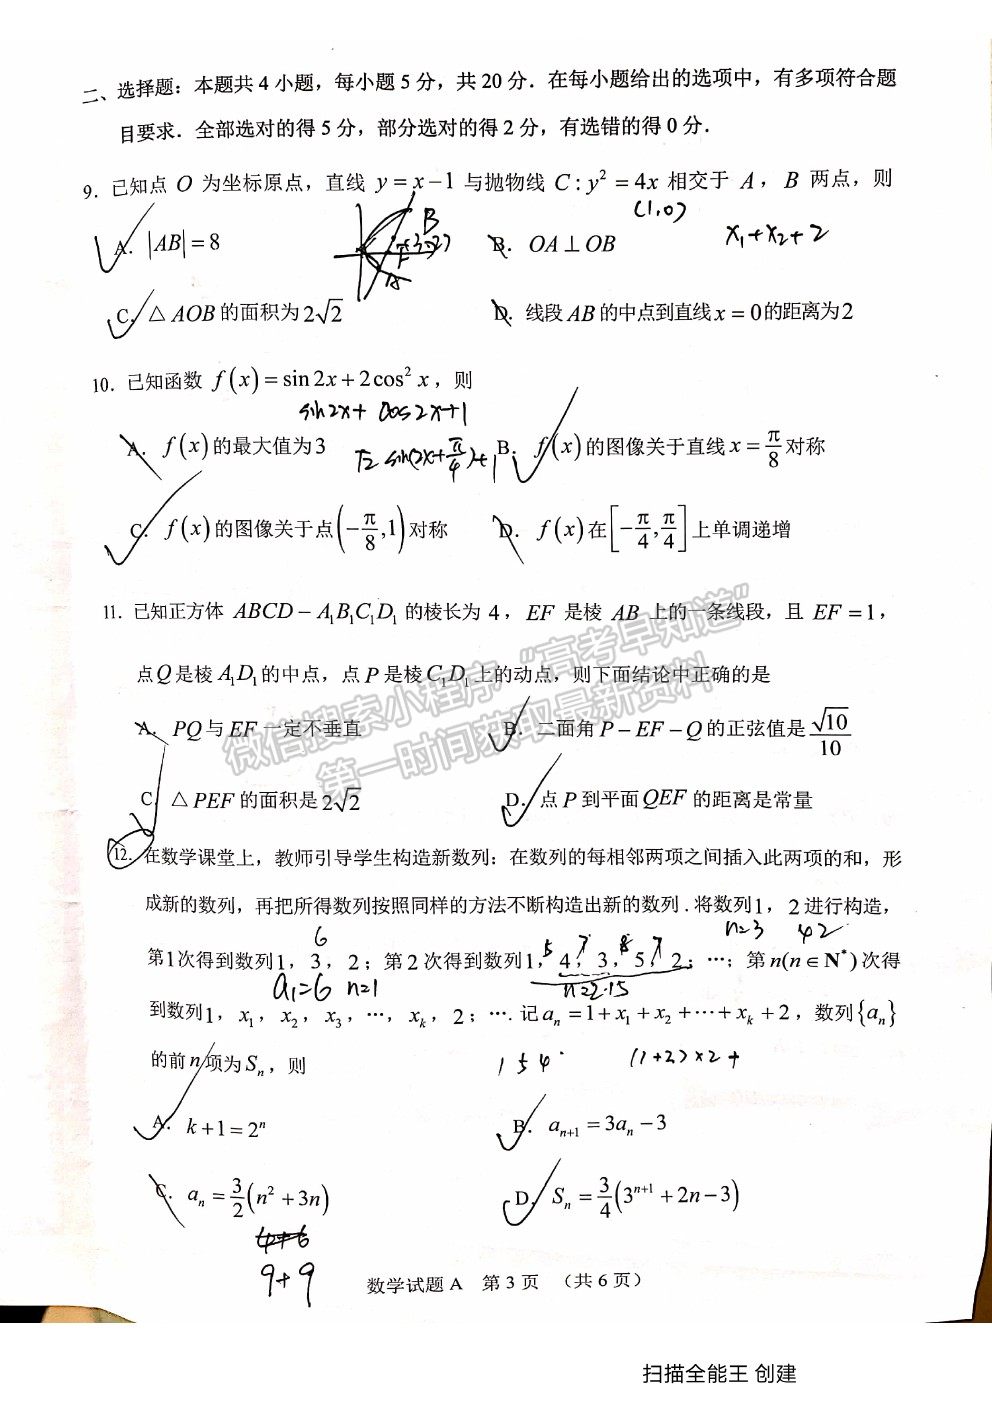 二、选择题：本题共4小题，每小题5分，共20分．在每小题给出的选项中，有多项符合题
目要求．全部选对的得5分，部分选对的得2分，有选错的得0分．
9．已知点 O 为坐标原点，直线 y = x − 1 与抛物线 C : y² = 4x 相交于 A， B 两点，则
(1,0)
x₁+x₂+2
B
F
A
A． |AB| = 8
B． OA ⊥ OB
C． △ AOB 的面积为 2√2
D． 线段 AB 的中点到直线 x = 0 的距离为 2
10．已知函数 f(x) = sin 2x + 2cos² x ，则
sin2x + cos2x+1
A． f(x) 的最大值为 3
√2 sin(2x+π/4)+1
B． f(x) 的图像关于直线 x = π/8 对称
C． f(x) 的图像关于点 (−π/8, 1) 对称
D． f(x) 在 [−π/4, π/4] 上单调递增
11．已知正方体 ABCD − A₁B₁C₁D₁ 的棱长为 4， EF 是棱 AB 上的一条线段，且 EF = 1，
点 Q 是棱 A₁D₁ 的中点，点 P 是棱 C₁D₁ 上的动点，则下面结论中正确的是
A． PQ 与 EF 一定不垂直
B． 二面角 P − EF − Q 的正弦值是 √10/10
C． △ PEF 的面积是 2√2
D． 点 P 到平面 QEF 的距离是常量
微信搜索小程序“高考早知道”
第一时间获取最新资料
12．在数学课堂上，教师引导学生构造新数列：在数列的每相邻两项之间插入此两项的和，形
成新的数列，再把所得数列按照同样的方法不断构造出新的数列．将数列1， 2 进行构造，
n=3 42
6
5 7 8 7
第1次得到数列1， 3， 2；第2次得到数列1， 4， 3， 5， 2；⋯；第 n(n ∈ N*) 次得
a₁=6 n=1
n=2 15
到数列1， x₁， x₂， x₃，⋯， xₖ， 2；⋯．记 aₙ = 1 + x₁ + x₂ + ⋯ + xₖ + 2 ，数列{aₙ}
的前 n 项为 Sₙ，则
1 5 4
(1+2)×2+
A． k + 1 = 2ⁿ
B． aₙ₊₁ = 3aₙ − 3
C． aₙ = 3/2(n² + 3n)
D． Sₙ = 3/4(3ⁿ⁺¹ + 2n − 3)
9+9
数学试题 A 第 3 页 （共 6 页）
扫描全能王 创建